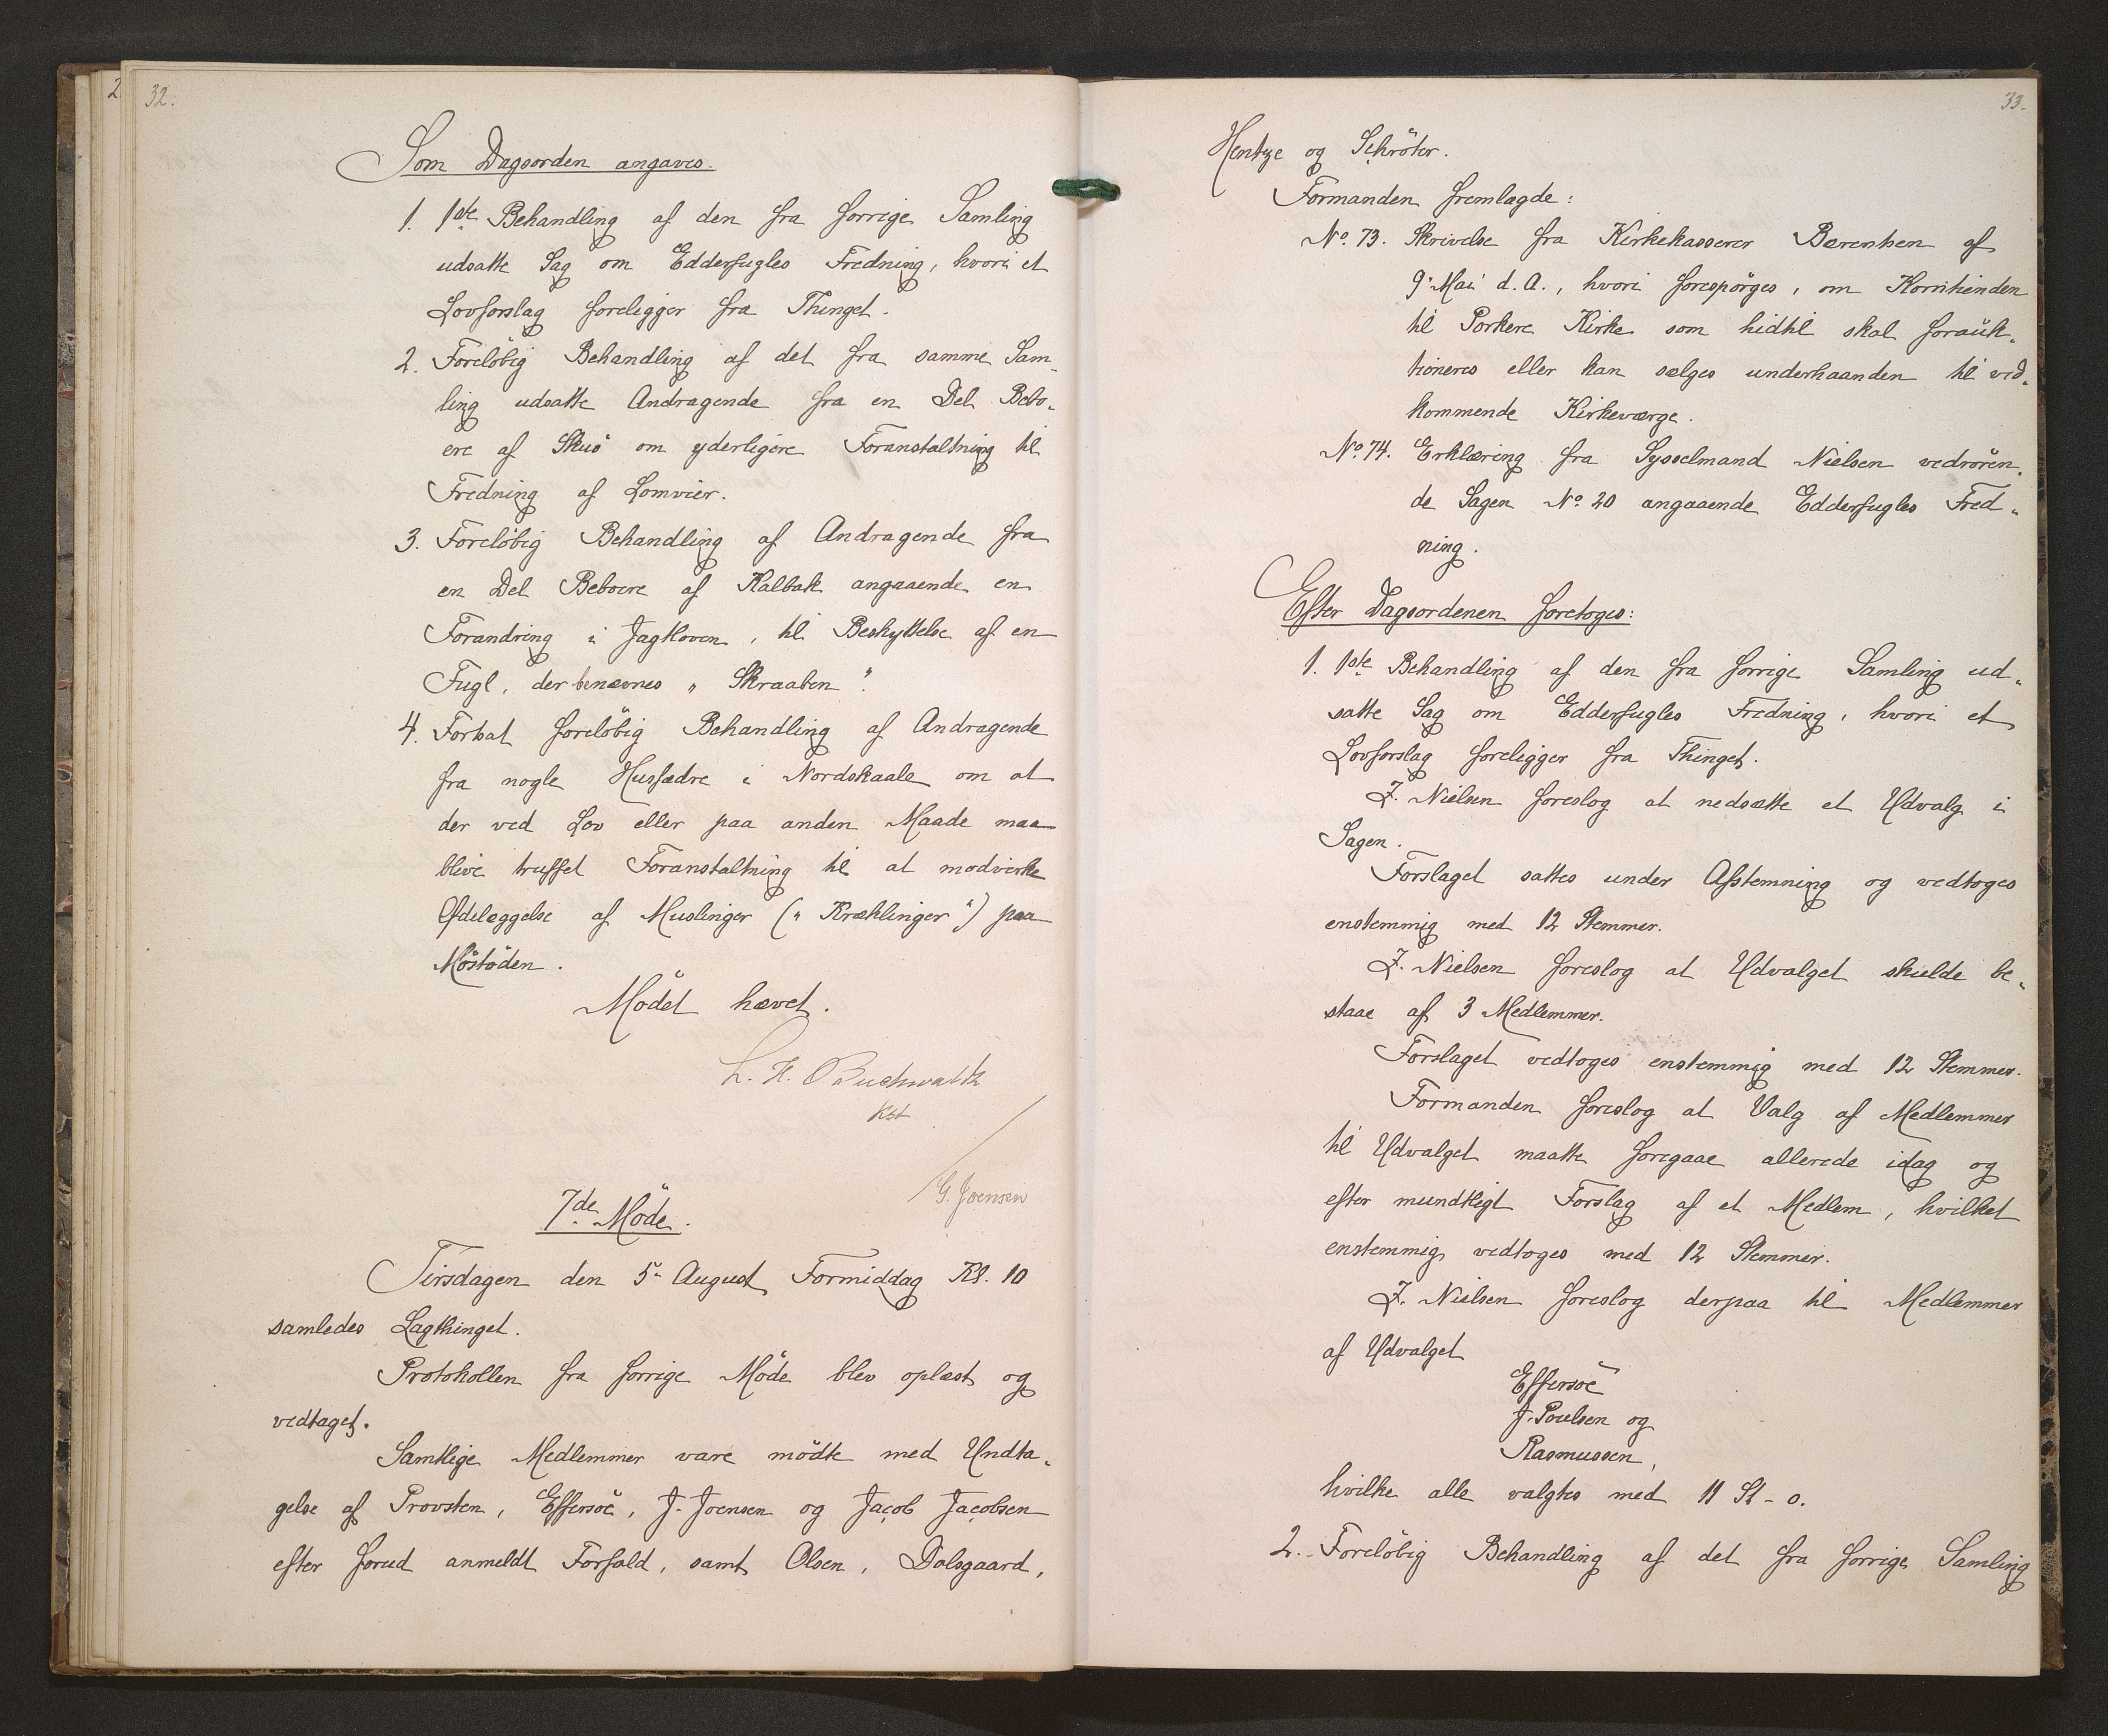 32.
Som Dagsorden angaves.
1. 1ste Behandling af den fra forrige Samling
udsatte Sag om Edderfugles Fredning, hvori et
Lovforslag foreligger fra Thinget.
2. Foreløbig Behandling af det fra samme Sam-
ling udsatte Andragende fra en Del Bebo-
ere af Skuö om yderligere Foranstaltning til
Fredning af Lomvier.
3. Foreløbig Behandling af Andragende fra
en Del Beboere af Kalbak angaaende en
Forandring i Jagtloven, til Beskyttelse af en
Fugl, der benævnes „Skraaben“.
4. Fortsat foreløbig Behandling af Andragende
fra nogle Husfædre i Nordskaale om at
der ved Lov eller paa anden Maade maa
blive truffet Foranstaltning til at modvirke
Ødelæggelse af Muslinger („Kræklinger“) paa
Möstöden.
Mödet hævet.
L. H. Buchwaldt
Kst
G. Joensen
7de Möde.
Tirsdagen den 5te August Formiddag Kl. 10
samledes Lagthinget.
Protokollen fra forrige Möde blev oplæst og
vedtaget.
Samtlige Medlemmer vare mödte med Undta-
gelse af Provsten, Effersöe, J. Joensen og Jacob Jacobsen
efter forud anmeldt Forfald, samt Olsen, Dalsgaard,
33.
Hentze og Schröter.
Formanden fremlagde:
No. 73. Skrivelse fra Kirkekasserer Bærentsen af
9' Mai d. A., hvori forespörges, om Korntienden
til Porkere Kirke som hidtil skal forauk-
tioneres eller kan sælges underhaanden til ved-
kommende Kirkeværge.
No. 74. Erklæring fra Sysselmand Nielsen vedrören-
de Sagen No. 20 angaaende Edderfugles Fred-
ning.
Efter Dagsordenen foretoges:
1. 1ste Behandling af den fra forrige Samling ud-
satte Sag om Edderfugles Fredning, hvori et
Lovforslag foreligger fra Thinget.
J. Nielsen foreslog at nedsætte et Udvalg i
Sagen.
Forslaget sattes under Afstemning og vedtoges
enstemmig med 12 Stemmer.
J. Nielsen foreslog at Udvalget skulde be-
staae af 3 Medlemmer.
Forslaget vedtoges enstemmig med 12 Stemmer.
Formanden foreslog at Valg af Medlemmer
til Udvalget maatte foregaae allerede idag og
efter mundtligt Forslag af et Medlem, hvilket
enstemmig vedtoges med 12 Stemmer.
J. Nielsen foreslog derpaa til Medlemmer
af Udvalget
Effersöe
J. Poulsen og
Rasmussen,
hvilke alle valgtes med 11 St - 0.
2. Foreløbig Behandling af det fra forrige Samling